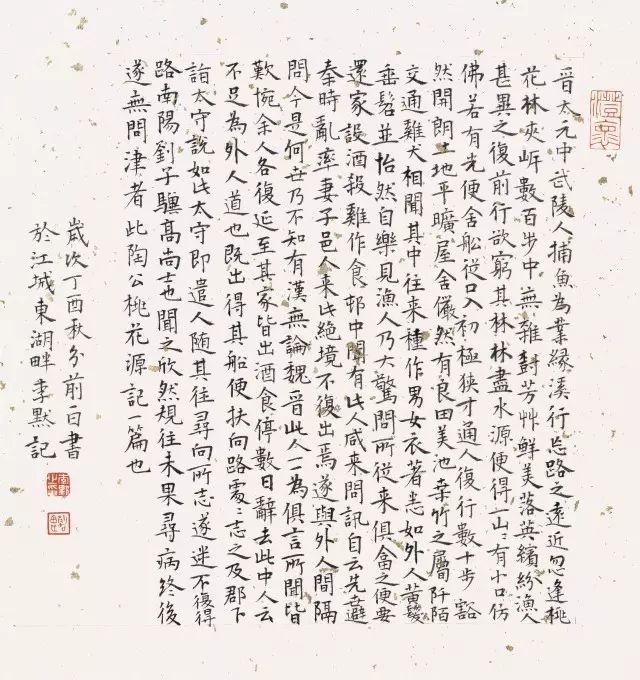 晉太元中武陵人捕魚為業緣溪行忘路之遠近忽逢桃
花林夾岍數百步中無雜樹芳艸鮮美落英繽紛漁人
甚異之復前行欲窮其林林盡水源便得一山〻有小口仿
佛若有光便舍船從口入初極狹才通人復行數十步豁
然開朗土地平曠屋舍儼然有良田美池桑竹之屬阡陌
交通雞犬相聞其中往來種作男女衣著悉如外人黃髮
垂髫並怡然自樂見漁人乃大驚問所從来俱畣之便要
還家設酒殺雞作食邨中聞有此人咸来問訊自云先世避
秦時亂率妻子邑人来此絕境不復出焉遂與外人間隔
問今是何世乃不知有漢無論魏晉此人一一為俱言所聞皆
歎惋余人各復延至其家皆出酒食停數日辭去此中人云
不足為外人道也既出得其船便扶向路處〻志之及郡下
詣太守說如此太守即遣人隨其往尋向所志遂迷不復得
路南陽劉子驥高尚士也聞之欣然規往未果尋病終後
遂無問津者 此陶公桃花源記一篇也
歲次丁酉秋分前一日書
於江城東湖畔李默記